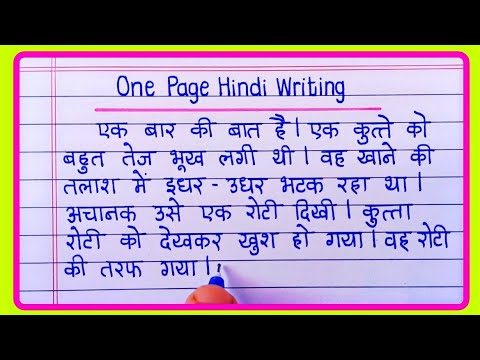 One Page Hindi Writing
एक बार की बात है। एक कुत्ते को
बहुत तेज भूख लगी थी। वह खाने की
तलाश में इधर - उधर भटक रहा था।
अचानक उसे एक रोटी दिखी। कुत्ता
रोटी को देखकर खुश हो गया। वह रोटी
की तरफ गया।